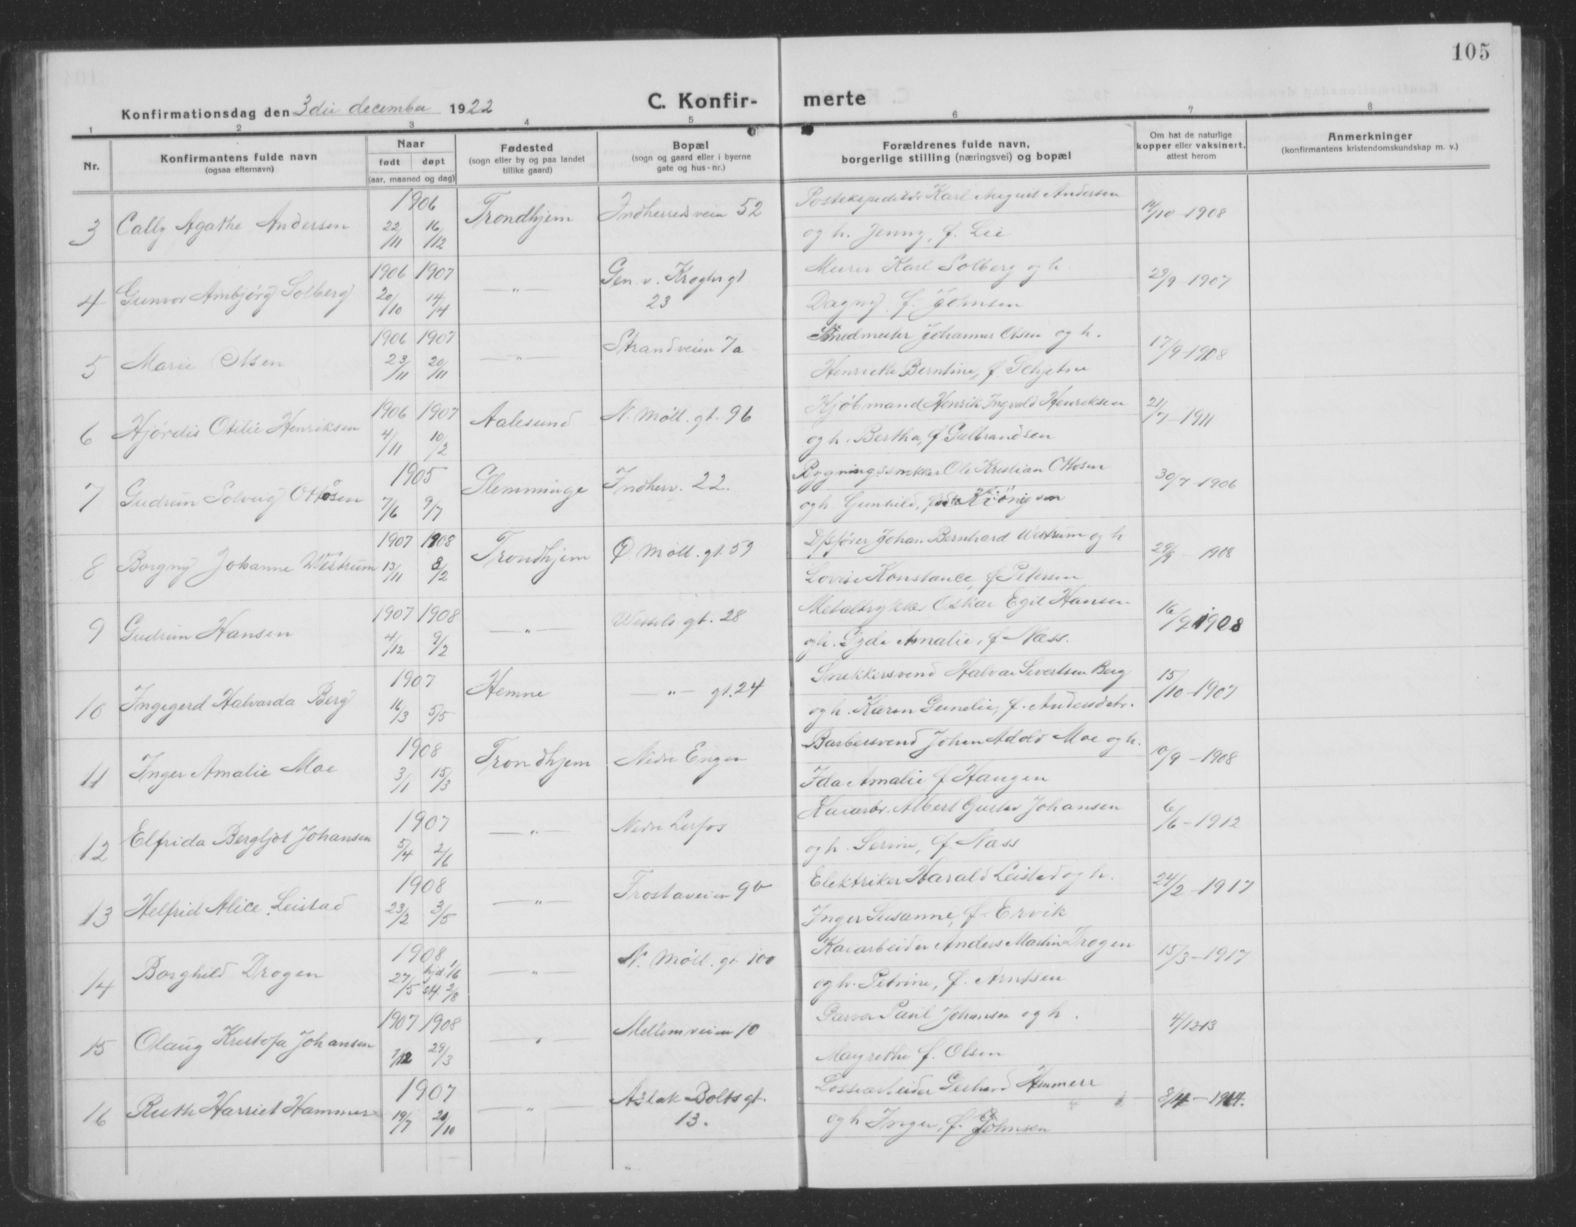 105
Konfirmationsdag den 3die december 1922
C. Konfir- merte
1 2 3 4 5 6 7 8
Nr.
Konfirmantens fulde navn
(ogsaa efternavn)
Naar
født døpt
(aar, maaned og dag)
Fødested
(sogn eller by og paa landet
tillike gaard)
Bopæl
(sogn og gaard eller i byerne
gate og hus-nr.)
Forældrenes fulde navn,
borgerlige stilling (næringsvei) og bopæl
Om hat de naturlige
kopper eller vaksinert,
attest herom
Anmerkninger
(konfirmantens kristendomskundskap m. v.)
3 Cally Agathe Andersen 1906 22/11 16/12 Trondhjem Indherredsveien 52 Postekspeditør Karl August Andersen 17/10-1908
og h. Jenny, f. Lie
4 Gunvor Ambjørg Solberg 1906 20/10 1907 14/4 —"— Gen. v. Kroghs gt 23 Murer Karl Solberg og h. 23/9-1907
Dagny f. Johnsen
5 Marie Olsen 1906 23/11 1907 20/11 —"— Strandveien 7a Smedmester Johannes Olsen og h. 17/9-1908
Henrikke Berntine, f Schjetne
6 Hjørdis Otilie Henriksen 1906 4/11 1907 10/2 Aalesund N. Møll. gt. 96 Kjøbmand Henrik Ingvald Henriksen 21/7-1911
og h. Bertha, f Gulbrandsen
7 Gudrun Solveig Ottøsen 1905 7/6 9/7 Glemminge Indherv. 22. Bygningssnekker Ole Kristian Ottosen 30/7-1906
og h Gunhild,
8 Borgny Johanne Westrum 1907 13/11 1908 3/2 Trondhjem Ø. Møll. gt. 59 Opsyner Johan Bernhard Westrum og h 29/9-1908
Lovise Konstance, f Petersen
9 Gudrun Hansen 1907 4/12 1908 9/2 —"— Wessels gt. 28 Metaltrykker Oskar Egil Hansen 16/9 1908
og h. Gyda Amalie, f Næss.
10 Ingegerd Halvarda Berg 1907 16/3 5/5 Hemne —"— gt. 24 Snekkersvend Halvar Sivertsen Berg 15/10-1907
og h. Karen Gunelie, f. Andersdtr.
11 Inger Amalie Moe 1908 3/1 15/3 Trondhjem Nedre Enger Barbersvend Johan Adolf Moe og h. 10/9-1908
Ida Amalie f Haugen
12 Elfrida Bergljot Johansen 1907 5/4 2/6 —"— Nedre Lerfos Albert Gustav Johansen 6/6-1912
og h. Serine, f Næss
13 Helfrid Alice Leistad 1908 23/2 3/5 —"— Trostaveien 9b Elektriker Harald Leistad og h. 24/2-1917
Inger Susanne, f. Ervik
14 Borghild Drogen 1908 27/5 hjd 1/6 st4 2/8 —"— N. Møll. gt 100 Kaiarbeider Anders Martin Drogen 15/3-1917
og h. Petrine, f. Arntsen
15 Olaug Kristofa Johansen 1907 7/12 1908 29/3 —"— Mellemveien 10 Garver Paul Johansen og h. 4/12-13
Magrethe f. Olsen
16 Ruth Harriet Hammer 1907 19/7 20/10 —"— Aslak Bolts gt. 13. Lossearbeider Gerhard Hammer 8/4-1914.
og h Inger, f. Johnsen